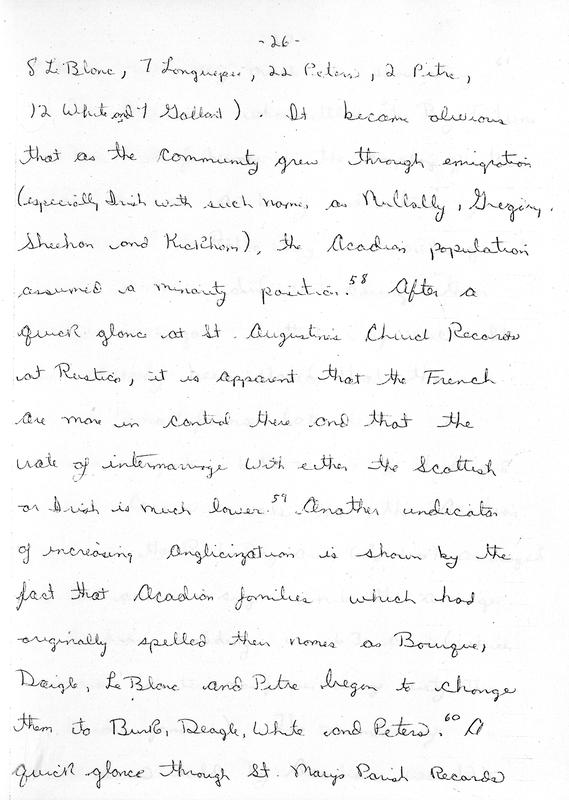 -26-
8 Le Blanc, 7 Longuepee, 22 Peters, 2 Pitre,
12 White and 7 Gallant). It became obvious
that as the community grew through emigration
(especially Irish with such names as Nullally, Gregory,
Sheehan and Kickham), the Acadian population
assumed a minority position.58 After a
quick glance at St. Augustine's Church Records
at Rustico, it is apparent that the French
are more in control there and that the
rate of intermarriage with either the Scottish
or Irish is much lower.59 Another indicator
of increasing Anglicization is shown by the
fact that Acadian families which had
originally spelled their names as Bourque,
Daigle, Le Blanc and Pitre began to change
them to Burk, Deagle, White and Peters.60 A
quick glance through St. Mary's Parish Records